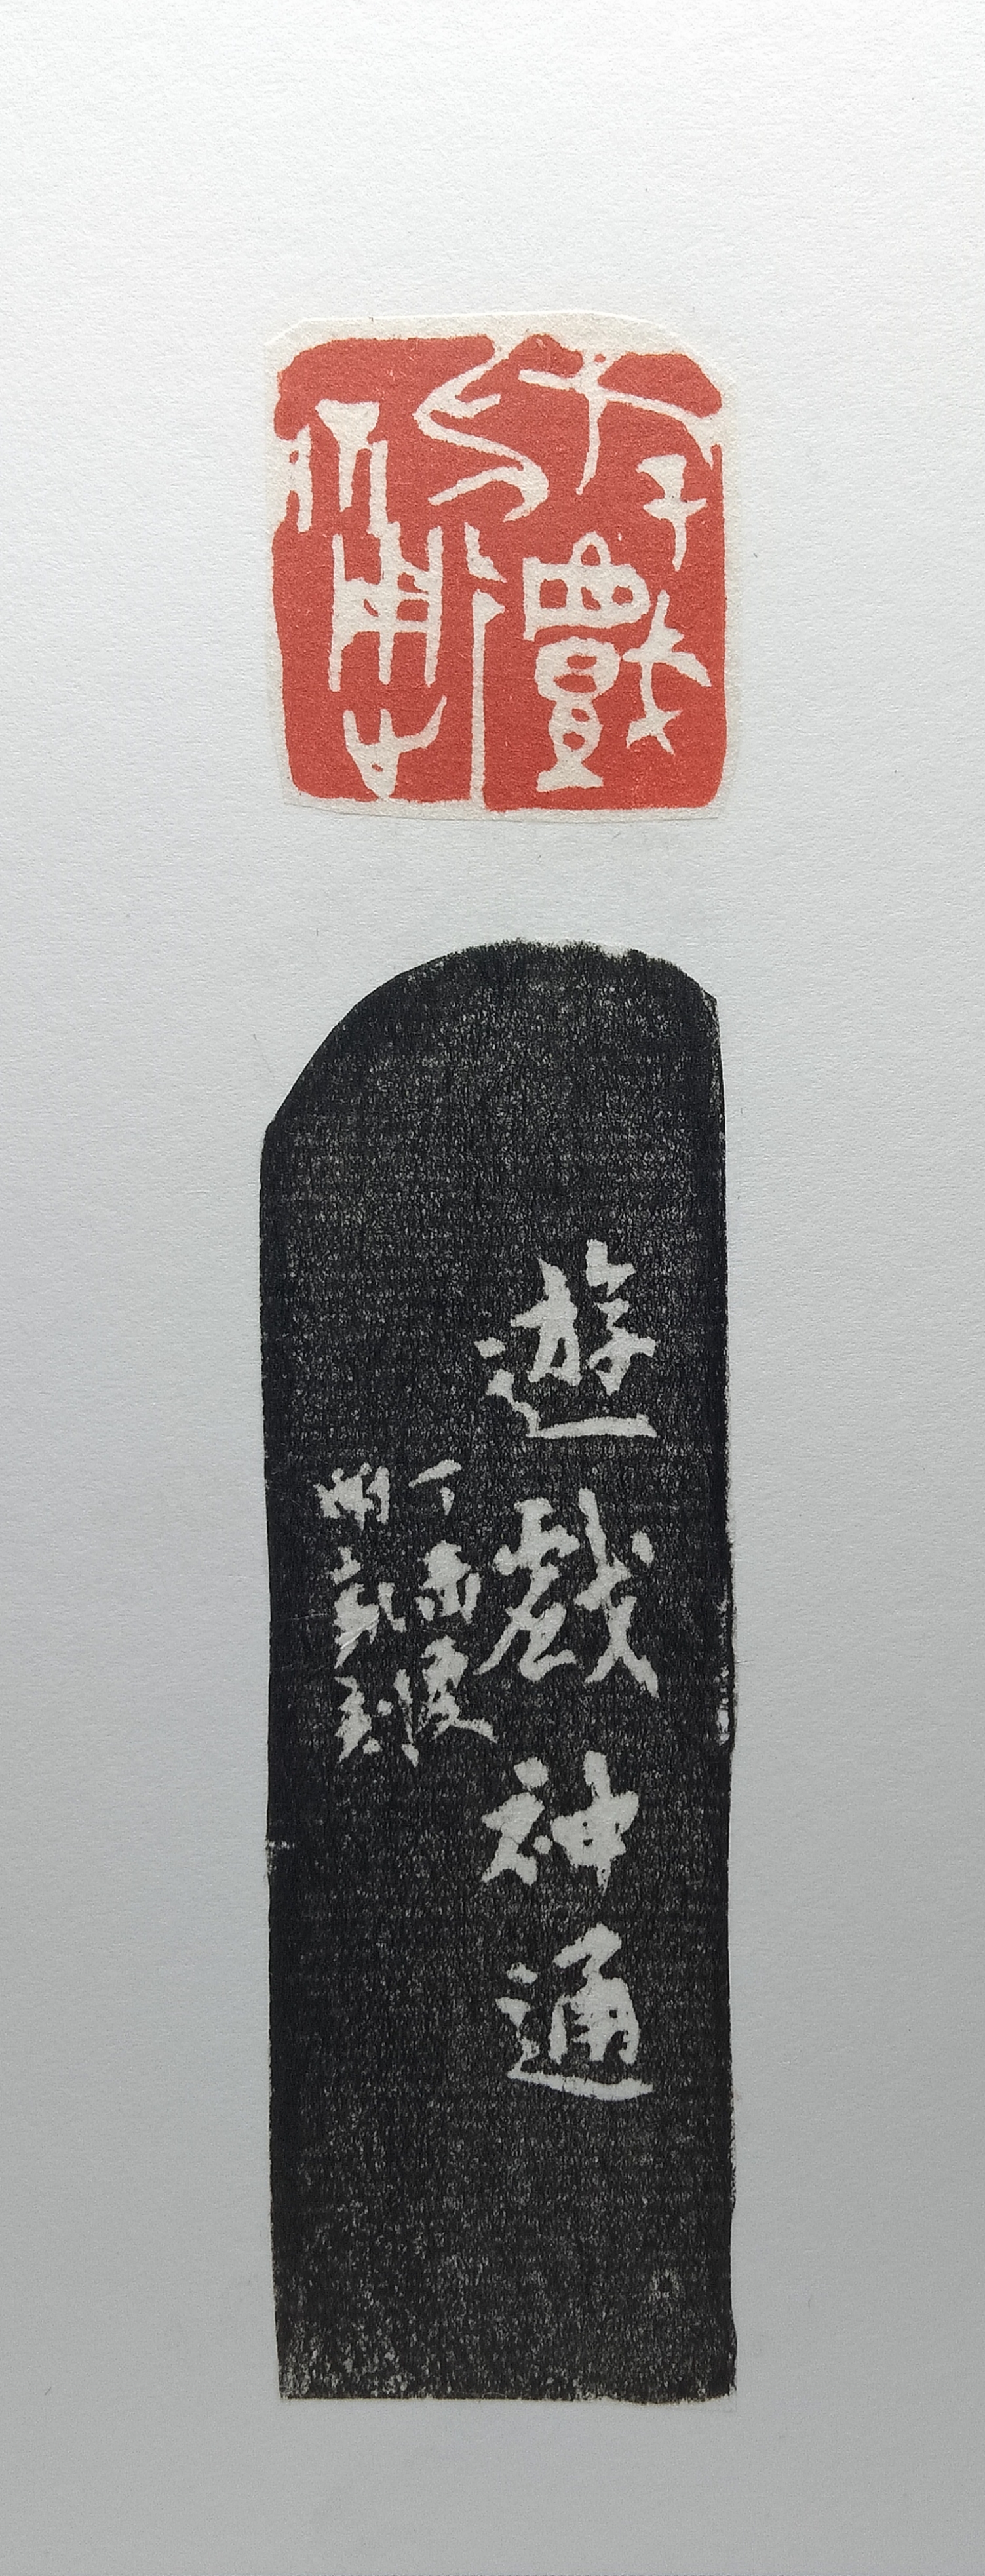 斿戲
神通
遊戲神通
丁酉夏
刻